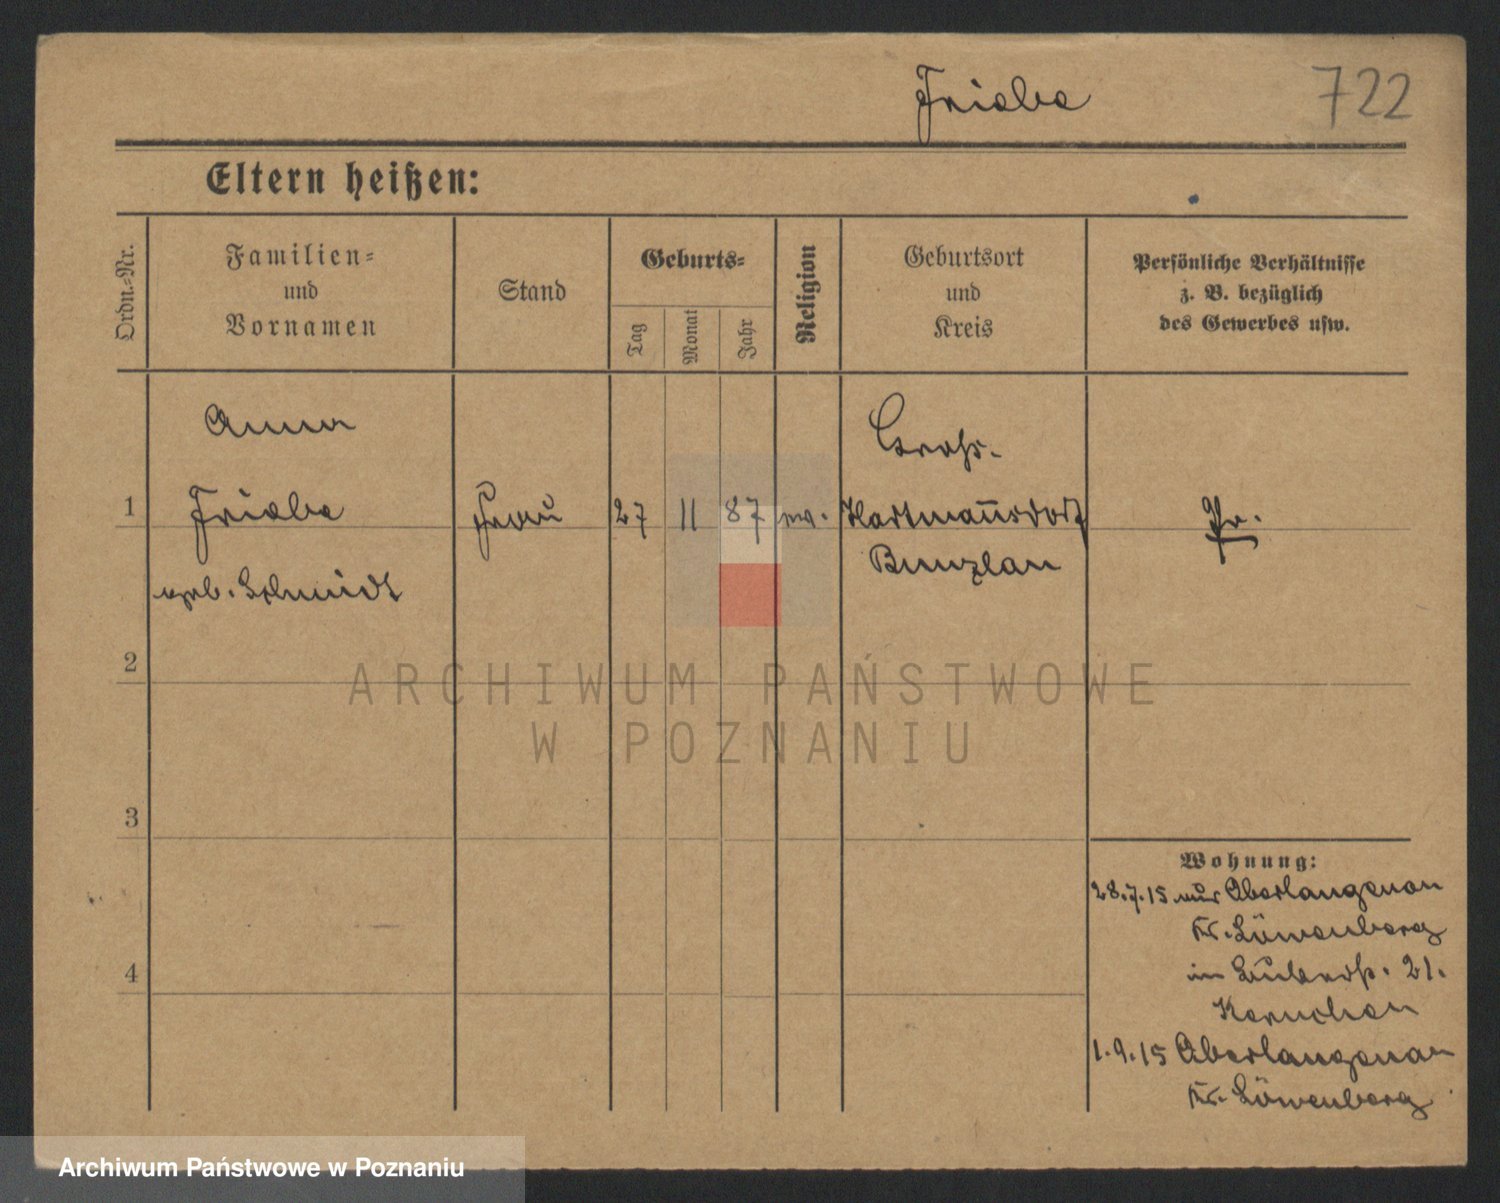 Friebe
722
Eltern heißen:
Ordn.-Nr.
Familien-
und
Vornamen
Stand
Geburts-
Tag
Monat
Jahr
Religion
Geburtsort
und
Kreis
Persönliche Verhältnisse
z. B. bezüglich
des Gewerbes usw.
Anna
1 Friebe Frau 27 11 87 ev. Hartmannsdorf Pr.
geb. Schmidt
Gross-
Bunzlau
2
ARCHIWUM PAŃSTWOWE
W POZNANIU
3
4
Wohnung:
28.7.15 aus Oberlangenau
Kr. Löwenberg
in 21.
1.9.15 Oberlangenau
Kr. Löwenberg
Archiwum Państwowe w Poznaniu